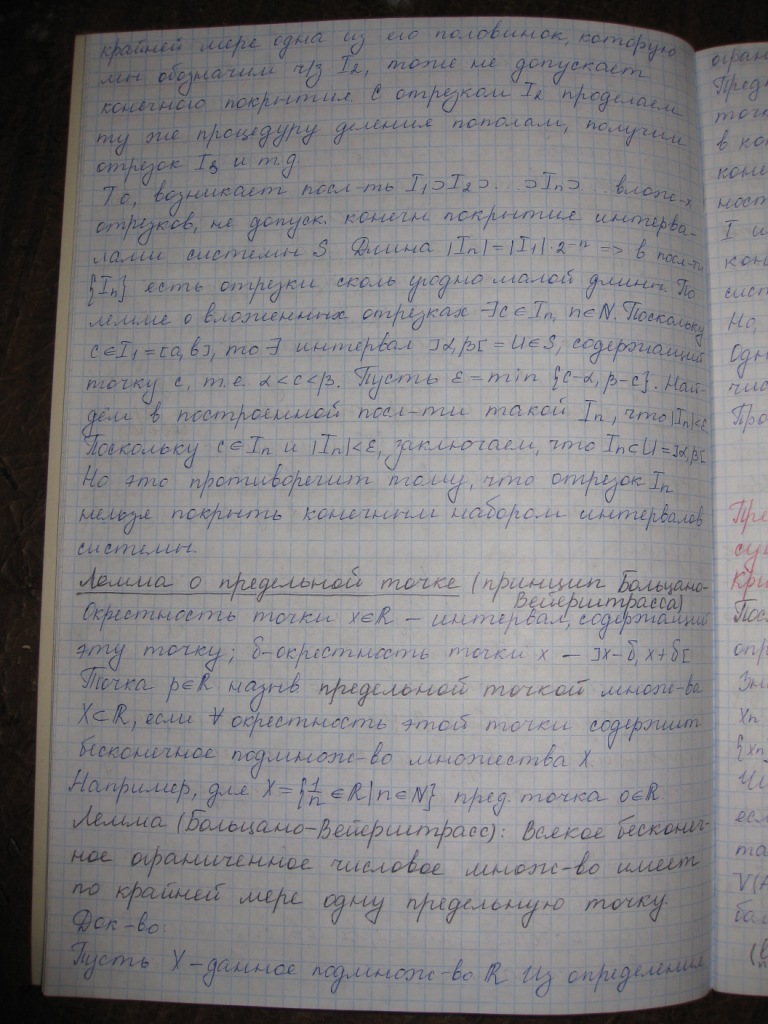 крайней мере одна из его половинок, которую
мы обозначим ч/з I₂, тоже не допускает
конечного покрытия. С отрезком I₂ проделаем
ту же процедуру деления пополам, получим
отрезок I₃ и т.д.
Т.о., возникает посл-ть I₁⊃I₂⊃...⊃Iₙ⊃... влож-х
отрезков, не допуск. конечн покрытия интерва-
лами системы S. Длина |Iₙ|=|I₁|·2⁻ⁿ => в посл-ти
{Iₙ} есть отрезки сколь угодно малой длины. По
лемме о вложенных отрезках ∃c∈Iₙ, n∈N. Поскольку
c∈I₁=[a,b], то ∃ интервал ]α,β[=U∈S, содержащий
точку c, т.е. α<c<β. Пусть ε=min {c-α, β-c}. Най-
дём в построенной посл-ти такой Iₙ, что |Iₙ|<ε
Поскольку c∈Iₙ и |Iₙ|<ε, заключаем, что Iₙ⊂U=]α,β[
Но это противоречит тому, что отрезок Iₙ
нельзя покрыть конечным набором интервалов
системы.
Лемма о предельной точке (принцип Больцано-
Вейерштрасса)
Окрестность точки x∈R – интервал, содержащий
эту точку; δ-окрестность точки x – ]x-δ, x+δ[
Точка p∈R назыв предельной точкой множ-ва
X⊂R, если ∀ окрестность этой точки содержит
бесконечное подмнож-во множества X.
Например, для X={1/n∈R|n∈N} пред. точка 0∈R.
Лемма (Больцано-Вейерштрасс): Всякое бесконеч-
ное ограниченное числовое множ-во имеет
по крайней мере одну предельную точку.
Док-во:
Пусть X – данное подмнож-во R. Из определения